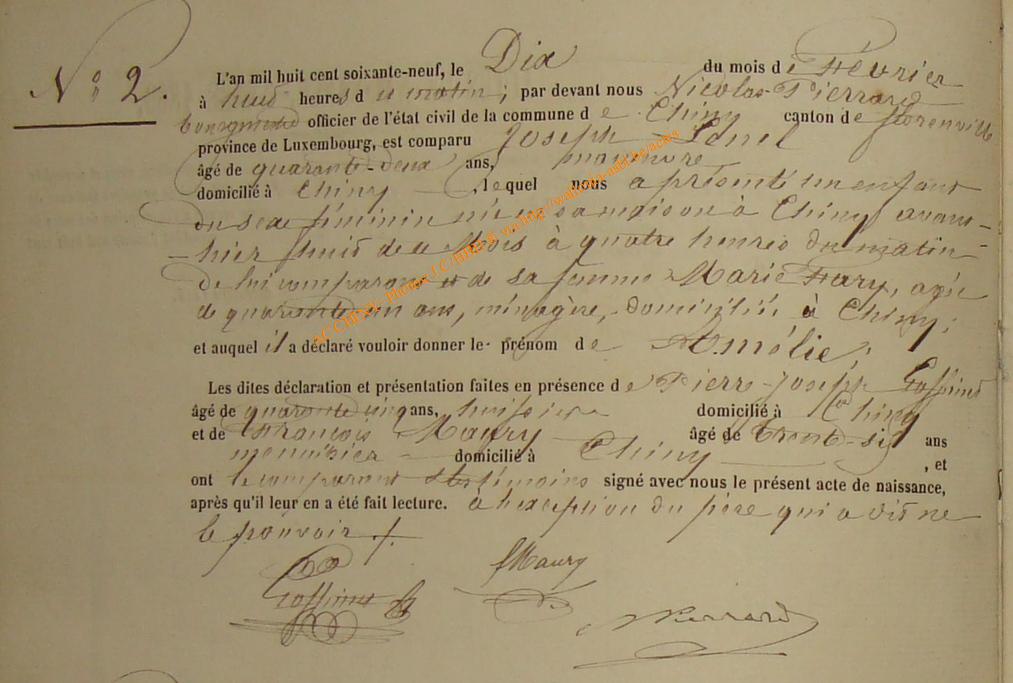 N° 2.
L'an mil huit cent soixante-neuf, le Dix du mois de Février
à huit heures du matin; par devant nous Nicolas Pierrard
bourgmestre officier de l'état civil de la commune de Chiny canton de Florenville
province de Luxembourg, est comparu Joseph
âgé de quarante-deux ans, manœuvre
domicilié à Chiny, lequel nous a présenté un enfant
du sexe féminin née en sa maison à Chiny avant-
-hier huit de ce Mois à quatre heures du matin
de lui comparant et de sa femme Marie, agée
de quarante un ans, ménagère, domiciliée à Chiny;
et auquel il a déclaré vouloir donner le prénom de Amélie;
Les dites déclaration et présentation faites en présence de Pierre-Joseph
âgé de quarante cinq ans, huissier domicilié à Chiny
et de François Maury âgé de trente-six ans
menuisier domicilié à Chiny, et
ont le comparant et les témoins signé avec nous le présent acte de naissance,
après qu'il leur en a été fait lecture. à l'exception du père qui a dit ne
le pouvoir /.
fMaury
NPierrard